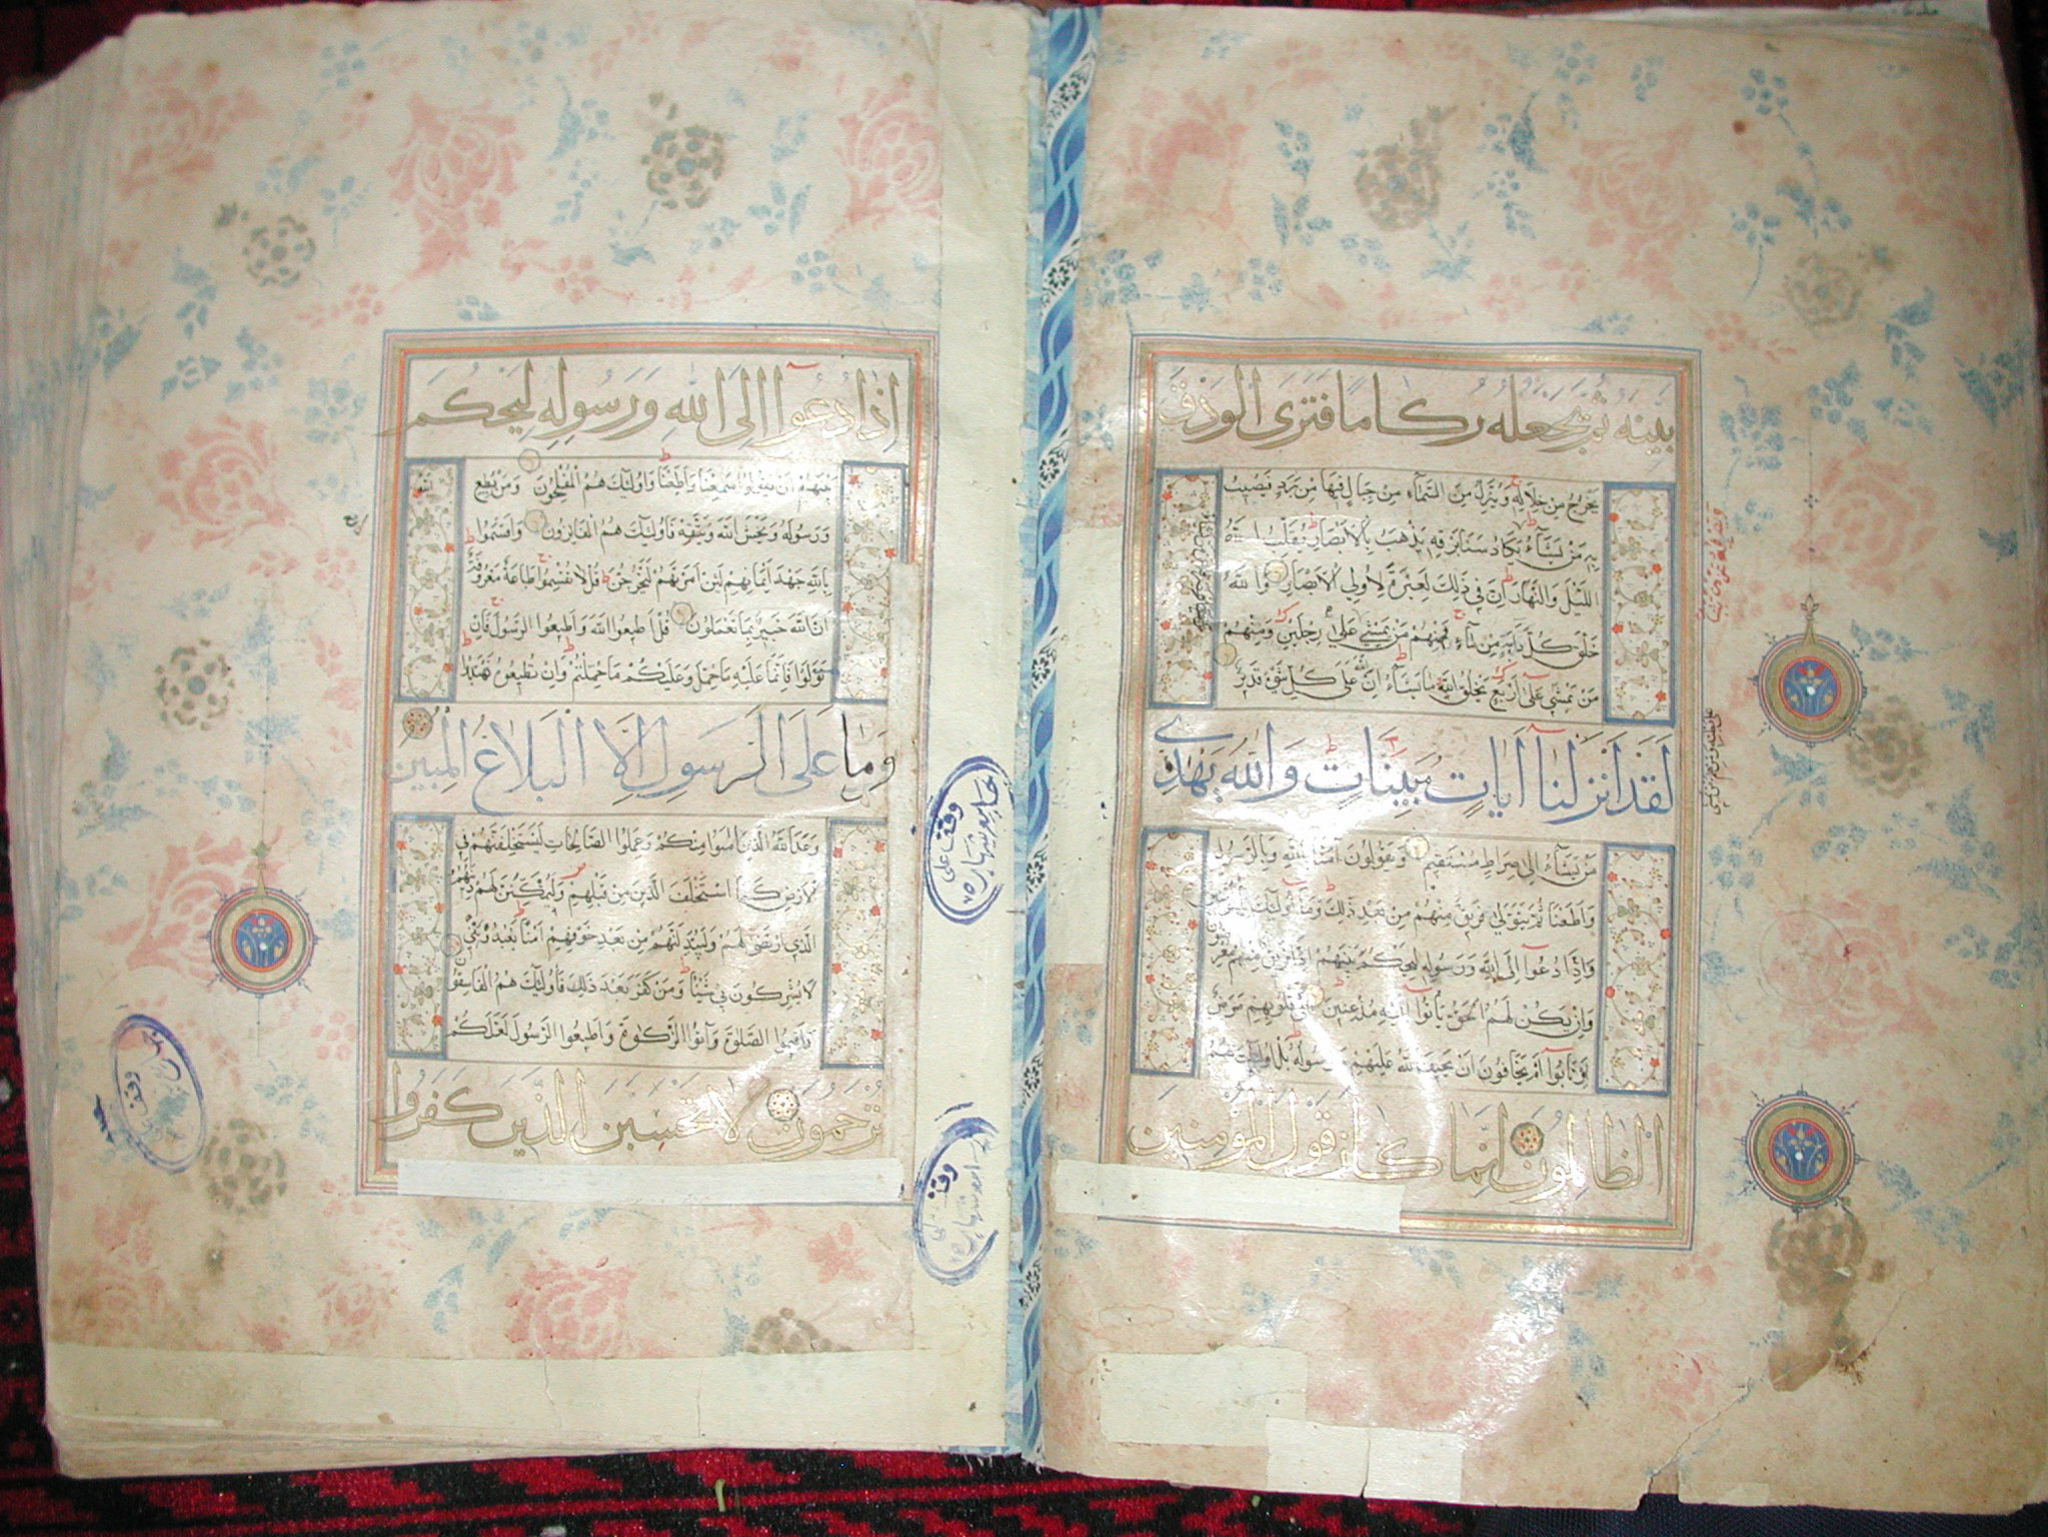 بَيْنَهُ ثُمَّ يَجْعَلُهُ رُكَامًا فَتَرَى الْوَدْقَ
يَخْرُجُ مِنْ خِلَالِهِ وَيُنَزِّلُ مِنَ السَّمَآءِ مِنْ جِبَالٍ فِيهَا مِنْ بَرَدٍ فَيُصِيبُ
بِهِ مَنْ يَشَآءُ يَكَادُ سَنَا بَرْقِهِ يَذْهَبُ بِالْأَبْصَارِ يُقَلِّبُ اللَّهُ
اللَّيْلَ وَالنَّهَارَ إِنَّ فِي ذَلِكَ لَعِبْرَةً لِأُولِي الْأَبْصَارِ وَاللَّهُ
خَلَقَ كُلَّ دَابَّةٍ مِنْ مَآءٍ فَمِنْهُمْ مَنْ يَمْشِي عَلَى رِجْلَيْنِ وَمِنْهُمْ
مَنْ يَمْشِي عَلَى أَرْبَعٍ يَخْلُقُ اللَّهُ مَا يَشَآءُ إِنَّ اللَّهَ عَلَى كُلِّ شَيْءٍ قَدِيرٌ
لَقَدْ أَنْزَلْنَا آيَاتٍ مُبَيِّنَاتٍ وَاللَّهُ يَهْدِي
مَنْ يَشَآءُ إِلَى صِرَاطٍ مُسْتَقِيمٍ وَيَقُولُونَ آمَنَّا بِاللَّهِ وَبِالرَّسُولِ
وَأَطَعْنَا ثُمَّ يَتَوَلَّى فَرِيقٌ مِنْهُمْ مِنْ بَعْدِ ذَلِكَ وَمَا أُولَئِكَ بِالْمُؤْمِنِينَ
وَإِذَا دُعُوا إِلَى اللَّهِ وَرَسُولِهِ لِيَحْكُمَ بَيْنَهُمْ إِذَا فَرِيقٌ مِنْهُمْ مُعْرِضُونَ
وَإِنْ يَكُنْ لَهُمُ الْحَقُّ يَأْتُوا إِلَيْهِ مُذْعِنِينَ أَفِي قُلُوبِهِمْ مَرَضٌ
أَمِ ارْتَابُوا أَمْ يَخَافُونَ أَنْ يَحِيفَ اللَّهُ عَلَيْهِمْ وَرَسُولُهُ بَلْ أُولَئِكَ هُمُ
الظَّالِمُونَ إِنَّمَا كَانَ قَوْلَ الْمُؤْمِنِينَ
إِذَا دُعُوا إِلَى اللَّهِ وَرَسُولِهِ لِيَحْكُمَ
بَيْنَهُمْ أَنْ يَقُولُوا سَمِعْنَا وَأَطَعْنَا وَأُولَئِكَ هُمُ الْمُفْلِحُونَ وَمَنْ يُطِعِ اللَّهَ
وَرَسُولَهُ وَيَخْشَ اللَّهَ وَيَتَّقْهِ فَأُولَئِكَ هُمُ الْفَائِزُونَ وَأَقْسَمُوا
بِاللَّهِ جَهْدَ أَيْمَانِهِمْ لَئِنْ أَمَرْتَهُمْ لَيَخْرُجُنَّ قُلْ لَا تُقْسِمُوا طَاعَةٌ مَعْرُوفَةٌ
إِنَّ اللَّهَ خَبِيرٌ بِمَا تَعْمَلُونَ قُلْ أَطِيعُوا اللَّهَ وَأَطِيعُوا الرَّسُولَ فَإِنْ
تَوَلَّوْا فَإِنَّمَا عَلَيْهِ مَا حُمِّلَ وَعَلَيْكُمْ مَا حُمِّلْتُمْ وَإِنْ تُطِيعُوهُ تَهْتَدُوا
وَمَا عَلَى الرَّسُولِ إِلَّا الْبَلَاغُ الْمُبِينُ
وَعَدَ اللَّهُ الَّذِينَ آمَنُوا مِنْكُمْ وَعَمِلُوا الصَّالِحَاتِ لَيَسْتَخْلِفَنَّهُمْ فِي
الْأَرْضِ كَمَا اسْتَخْلَفَ الَّذِينَ مِنْ قَبْلِهِمْ وَلَيُمَكِّنَنَّ لَهُمْ دِينَهُمُ
الَّذِي ارْتَضَى لَهُمْ وَلَيُبَدِّلَنَّهُمْ مِنْ بَعْدِ خَوْفِهِمْ أَمْنًا يَعْبُدُونَنِي
لَا يُشْرِكُونَ بِي شَيْئًا وَمَنْ كَفَرَ بَعْدَ ذَلِكَ فَأُولَئِكَ هُمُ الْفَاسِقُونَ
وَأَقِيمُوا الصَّلَوةَ وَآتُوا الزَّكَوةَ وَأَطِيعُوا الرَّسُولَ لَعَلَّكُمْ
تُرْحَمُونَ لَا تَحْسَبَنَّ الَّذِينَ كَفَرُوا
وقف على
وقف
وقف